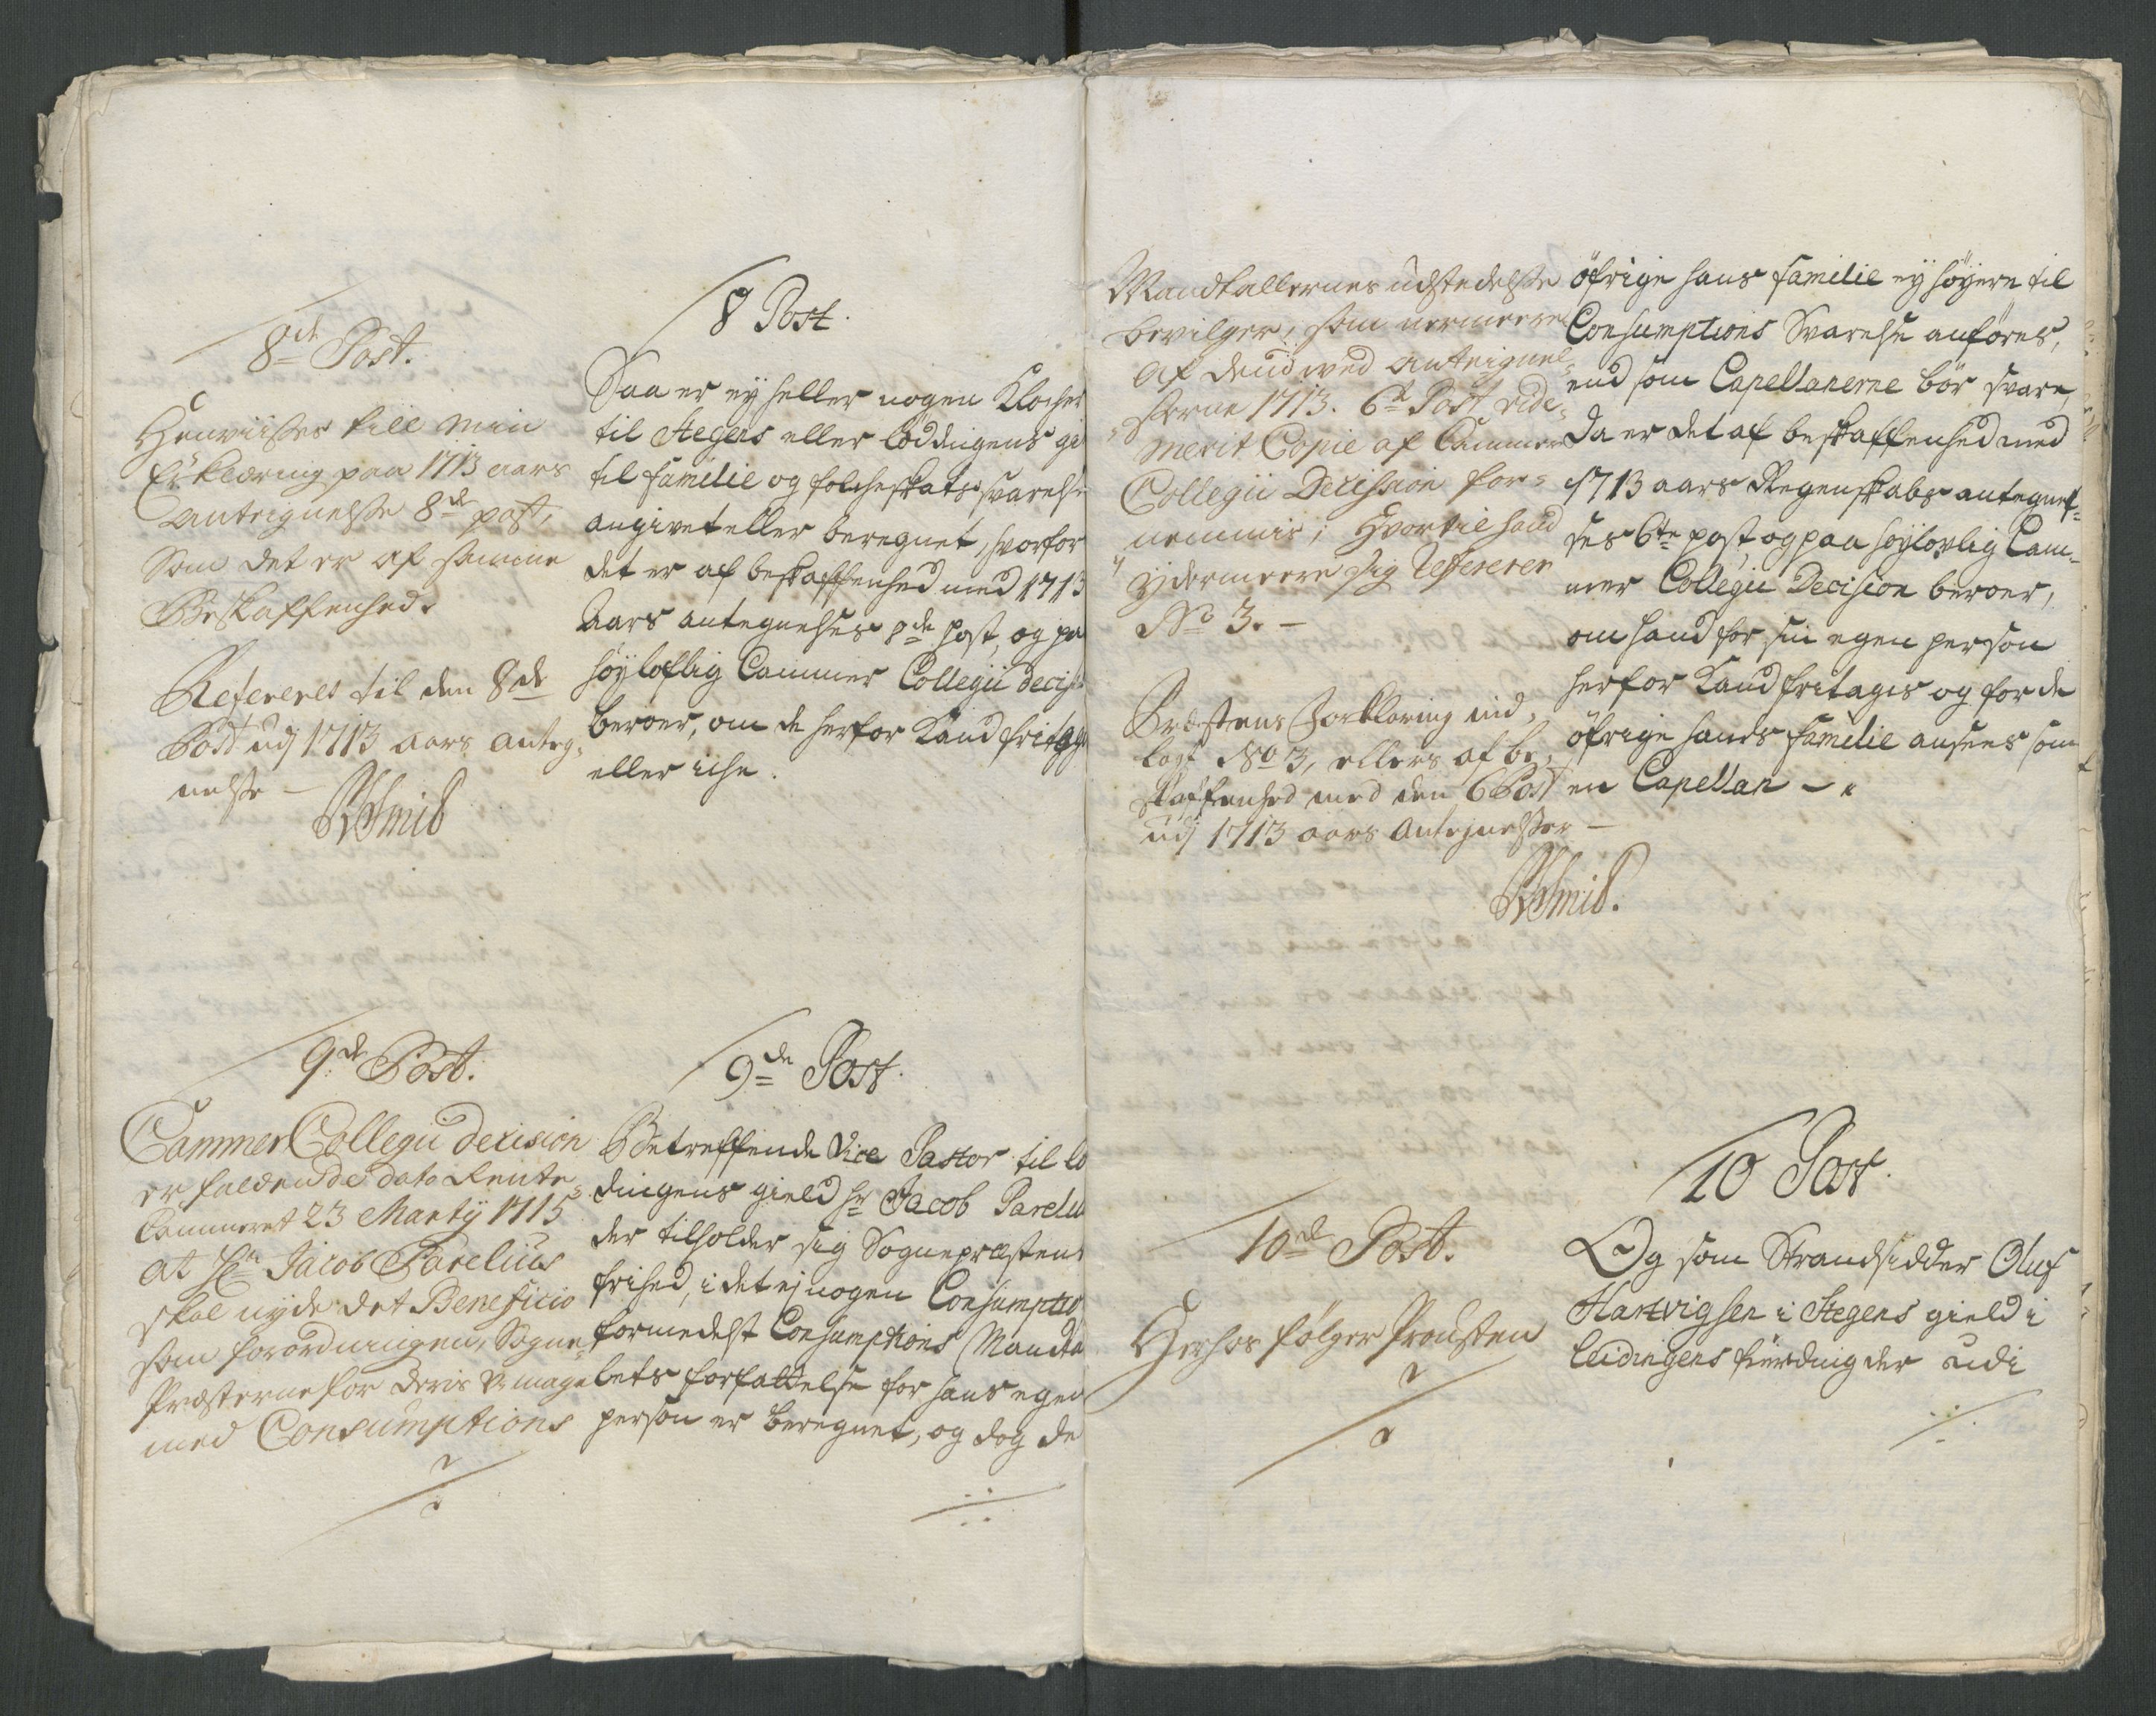 8de Post.
Henviises till min
Erklæring paa 1713 aars
Antegnelsse 8de post,
Som det er af samme
Beskaffenhed.
Refereres til den 8de
Post udj 1713 aars anteg-
nelsse —
8 Post.
Saa er ey heller nogen Klocher
til Stegens eller Lodingens gi
til familie og folcheskats svarelse
angivet eller beregnet, hvorfor
det er af beskaffenhed med 1713
Aars antegnelses 8de post, og pa
høyloflig Cammer Collegii decis
beroer, om de herfor Kand fritag
eller iche.
9de Post.
Cammer Collegii decision
er faldende dato Rente-
Cammeret 23 Marty 1715
at Hr Jacob Parelius
skal nyde det Beneficio
som forordningen, Sogne-
Præsterne for deris Umage
med Consumptions
9de Post.
Betreffende Vice Pastor til Lo
dingens gield Hr Jacob Pareliu
der tilholder sig Sognepræstens
frihed, i det ej nogen Consumptio
formedelst Consumptions Mandta
lets forfattelse for hans egen
person er beregnet, og dog de
Mandtallernes udstedelsse
bevilger, som nermere
af deud med antegnel-
serne 1713. 6te Post vide-
merit Copie af Cammer
Collegii Decission for-
nemmis; Hvortil hand
ydermeere sig Refererer
No 3. —
Præstens Forklaring ind-
lagt No 3, ellers af be-
skaffenhed med den 6 Post
udj 1713 aars Antegnelsser —
öfrige hans familie ey høyere til
Consumptions Svarelse anføres,
end som Capellanerne bör svare,
Da er det af beskaffenhed med
1713 aars Regenskabs antegnel-
ses 6te post, og paa höylovlig Cam-
mer Collegii Decision beroer,
om hand for sin egen person
herfor Kand fritages og for de
öfrige hands familie ansees som
en Capellan —
10de Post.
Herhos følger Prousten
10 Post.
Og som Strandsidder Oluf
Hartvigsen i Stegens gield i
Leidingens fierding der udi